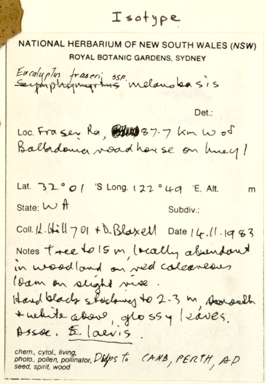 Isotype
NATIONAL HERBARIUM OF NEW SOUTH WALES (NSW)
ROYAL BOTANIC GARDENS, SYDNEY
Eucalyptus fraseri ssp.
melanobasis
Det.:
Loc. Fraser Ra, 87.7 km W of
Balladonia roadhouse on Hwy 1
Lat. 32° 01 'S Long. 122° 49 'E. Alt. m
State: WA Subdiv.:
Coll. K. Hill 701 + D. Blaxell Date 14.11.1983
Notes tree to 15 m, locally abundant
in woodland on red calcareous
loam on slight rise.
Hard black stocking to 2-3 m, smooth
+ white above, glossy leaves.
Assoc. E. laevis.
chem, cytol, living,
photo, pollen, pollinator, Dups to CANB, PERTH, AD
seed, spirit, wood